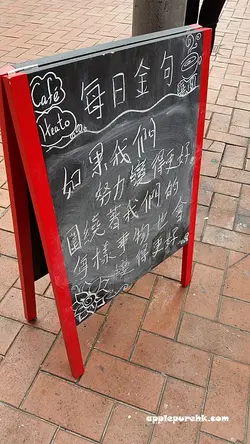 Café
Keato
每日金句
如果我們
努力變得更好
圍繞著我們的
每樣事物也會
變得更好
applepurehk.com